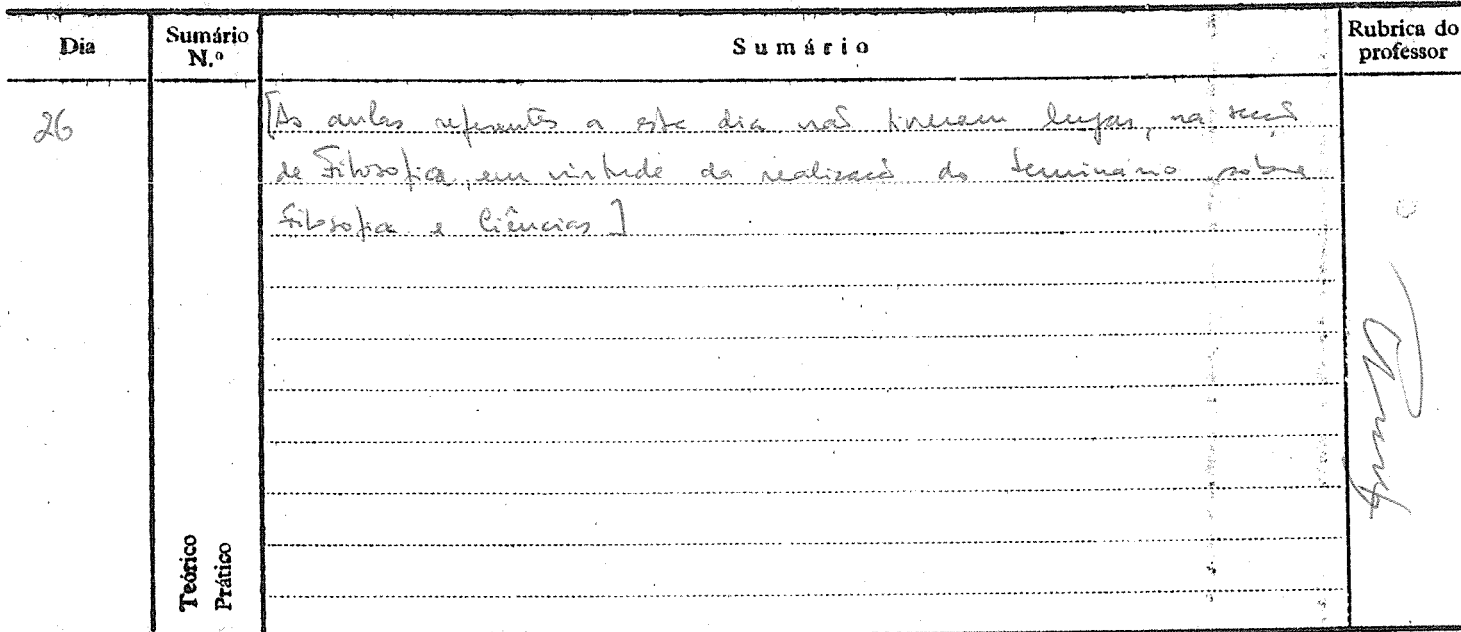 Dia
Sumário N.º
Sumário
Rubrica do professor
26
[As aulas referentes a este dia não tiveram lugar, na secção
de Filosofia, em virtude da realização do Seminário sobre
Filosofia e Ciências]
Teórico
Prático